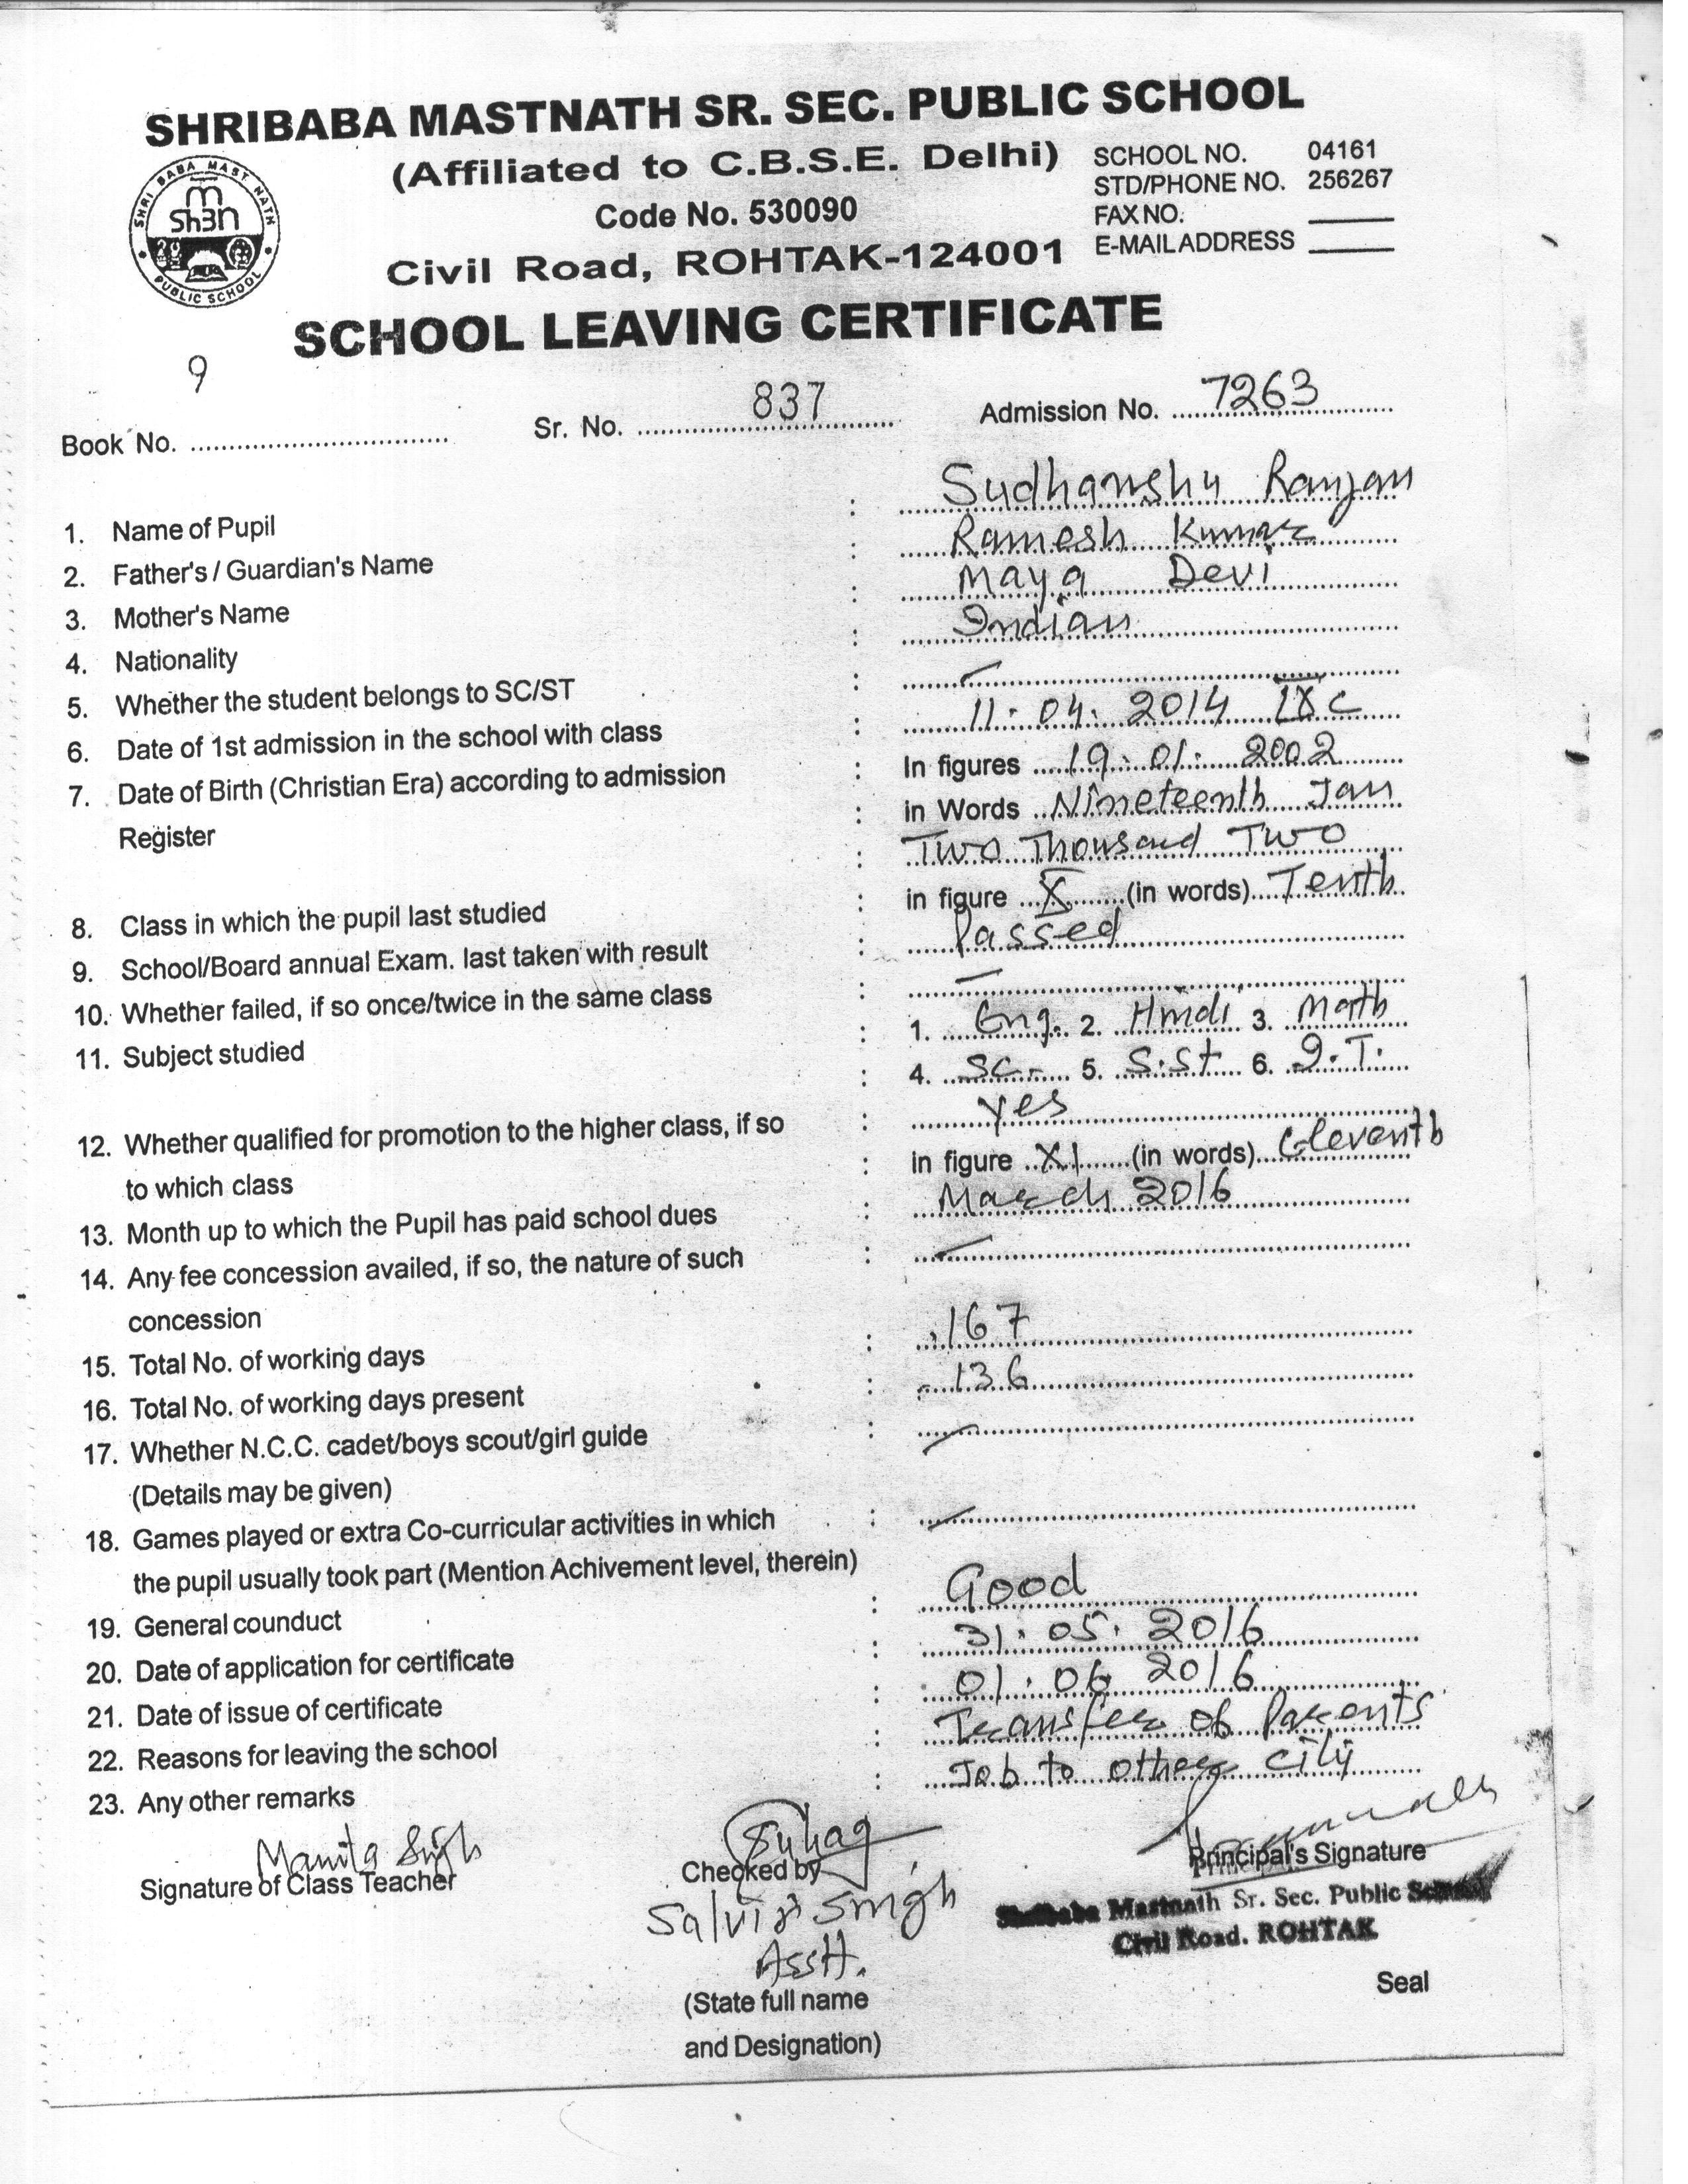 SHRIBABA MASTNATH SR. SEC. PUBLIC SCHOOL
(Affiliated to C.B.S.E. Delhi)
Code No. 530090
Civil Road, ROHTAK-124001
SCHOOL NO. 04161
STD/PHONE NO. 256267
FAX NO.
E-MAIL ADDRESS
SHRI BABA MAST NATH
Sh3n
PUBLIC SCHOOL
SCHOOL LEAVING CERTIFICATE
Book No. 9 Sr. No. 837 Admission No. 7263
1. Name of Pupil : Sudhanshu Ranjan
2. Father's / Guardian's Name : Ramesh Kumar
3. Mother's Name : Maya Devi
4. Nationality : Indian
5. Whether the student belongs to SC/ST :
6. Date of 1st admission in the school with class : 11.04.2014 IX C
7. Date of Birth (Christian Era) according to admission : In figures 19.01.2002
Register : in Words Nineteenth Jan
: Two Thousand Two
8. Class in which the pupil last studied : in figure X (in words) Tenth
9. School/Board annual Exam. last taken with result : Passed
10. Whether failed, if so once/twice in the same class :
11. Subject studied : 1. Eng. 2. Hindi 3. Math
: 4. SC. 5. S.St 6. I.T.
12. Whether qualified for promotion to the higher class, if so : Yes
to which class : in figure XI (in words) Eleventh
13. Month up to which the Pupil has paid school dues : March 2016
14. Any fee concession availed, if so, the nature of such :
concession
15. Total No. of working days : 167
16. Total No. of working days present : 136
17. Whether N.C.C. cadet/boys scout/girl guide :
(Details may be given)
18. Games played or extra Co-curricular activities in which :
the pupil usually took part (Mention Achivement level, therein)
19. General counduct : Good
20. Date of application for certificate : 31.05.2016
21. Date of issue of certificate : 01.06.2016
22. Reasons for leaving the school : Transfer of Parents
23. Any other remarks : Job to other city
Manita Sigh
Signature of Class Teacher
Suhag
Checked by
Singh
Asstt.
(State full name
and Designation)
Principal's Signature
Shribaba Mastnath Sr. Sec. Public School
Civil Road. ROHTAK
Seal